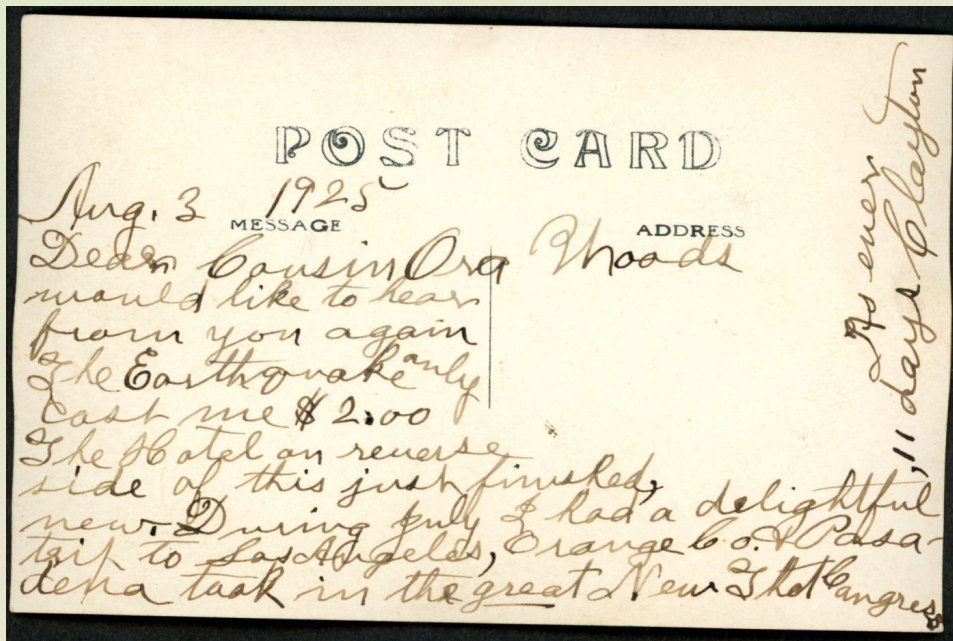 POST CARD
Aug. 3 1925
MESSAGE
ADDRESS
Dear Cousin Ora Rhoads
would like to hear
from you again
The Earthquake only
cost me $2.00
The Hotel on reverse
side of this just finished,
new. During July I had a delightful
trip to Los Angeles, Orange Co. & Pasa-
dena took in the great New Thot Congress
, 11 days Clayton
As ever